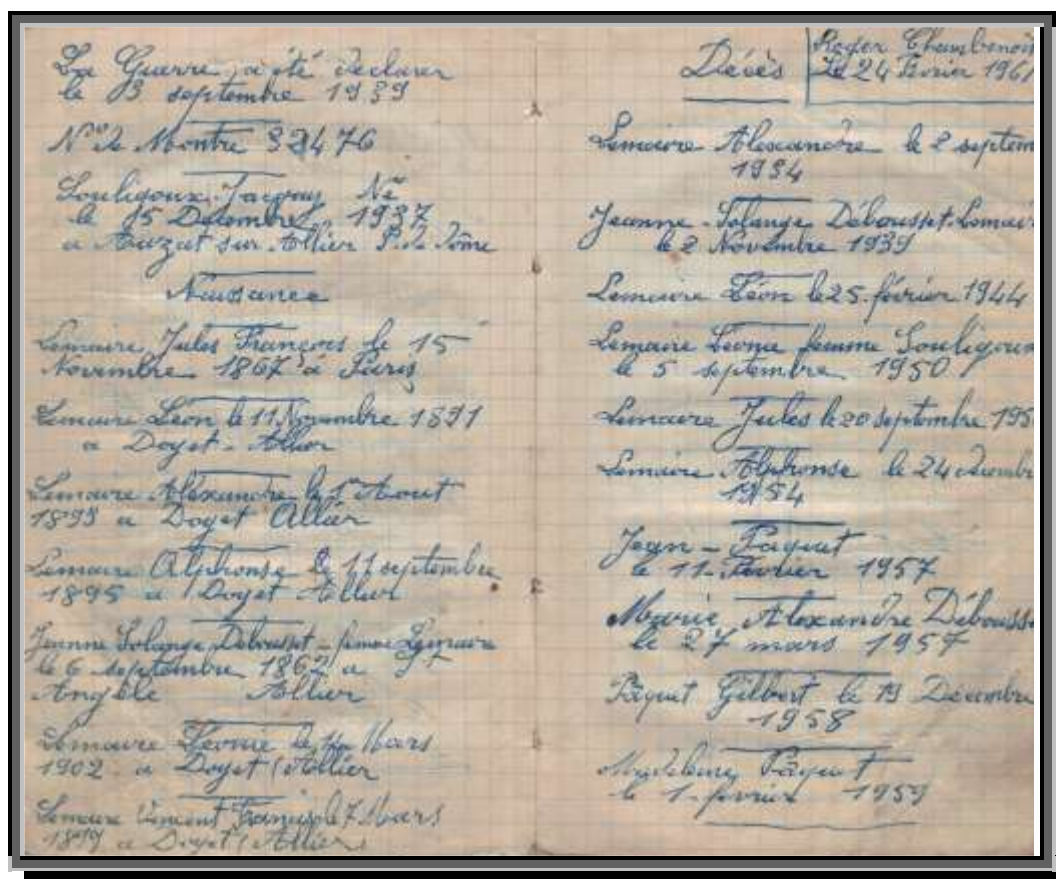 La Guerre a été déclarer
le 3 septembre 1939
N° de Montre 32476
Souligoux Jacques Né
le 15 Decembre 1937
a Auzat sur Allier P. de Dôme
Naissance
Lemaire Jules François le 15
Novembre 1867 à Paris
Lemaire Léon le 11 Novembre 1891
a Doyet - Allier
Lemaire Alexandre le 1er Aout
1893 a Doyet Allier
Lemaire Alphonse le 11 septembre
1895 a Doyet Allier
Jeanne Solange Débousset - femme Lemaire
le 6 septembre 1862 a
Allier
Lemaire Léonie le Mars
1902 a Doyet (Allier
Lemaire Vincent François le 7 Mars
1899 a Doyet (Allier)
Décès
Roger
Le 24 Fevrier 196
Lemaire Alexandre le 2 septem
1934
Jeanne - Solange Débousset - Lemair
le 2 Novembre 1939
Lemaire Léon le 25 février 1944
Lemaire Léonie femme Souligoux
le 5 septembre 1950
Lemaire Jules le 20 septembre 195
Lemaire Alphonse le 24 decembr
1954
Jean - Paquet
le 11 - Fevrier 1957
Marie Alexandre Débousse
le 27 mars 1957
Paquet Gilbert le 19 Décembre
1958
Madeleine Paquet
le 1 - fevrier 1959